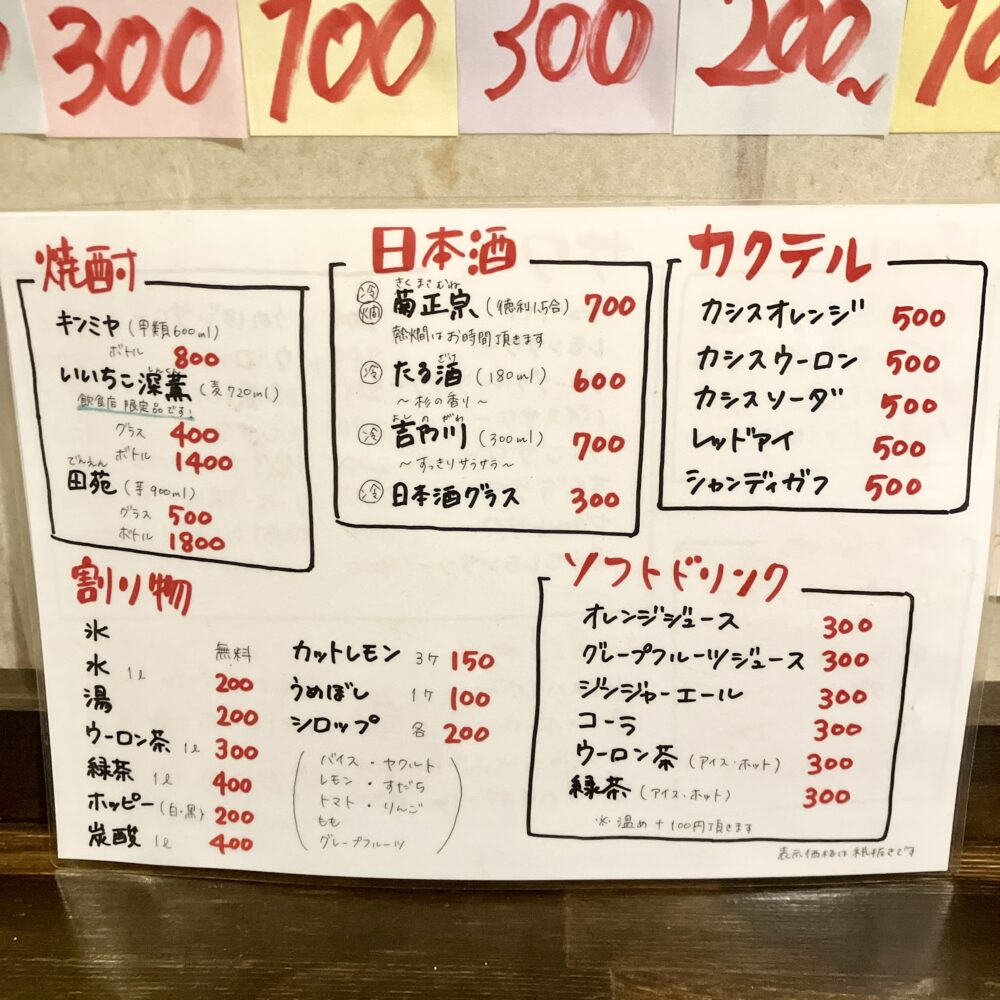 300
700
300
200~
焼酎
キンミヤ (甲類600ml)
ボトル 800
いいちこ深薫 (麦720ml)
飲食店限定品です!
グラス 400
ボトル 1400
でんえん
田苑 (芋900ml)
グラス 500
ボトル 1800
日本酒
きくまさむね
冷 燗 菊正宗 (徳利1.5合) 700
熱燗はお時間頂きます
ざけ
冷 たる酒 (180ml) 600
~杉の香り~
よしのがわ
冷 吉乃川 (300ml) 700
~すっきりサラサラ~
冷 日本酒グラス 300
カクテル
カシスオレンジ 500
カシスウーロン 500
カシスソーダ 500
レッドアイ 500
シャンディガフ 500
割り物
氷 無料
水 1l 200
湯 200
ウーロン茶 1l 300
緑茶 1l 400
ホッピー (白・黒) 200
炭酸 1l 400
カットレモン 3ケ 150
うめぼし 1ケ 100
シロップ 各 200
(バイス・ヤクルト
レモン・すだち
トマト・りんご
もも
グレープフルーツ)
ソフトドリンク
オレンジジュース 300
グレープフルーツジュース 300
ジンジャーエール 300
コーラ 300
ウーロン茶 (アイス・ホット) 300
緑茶 (アイス・ホット) 300
※温め+100円頂きます
表示価格は税抜きです